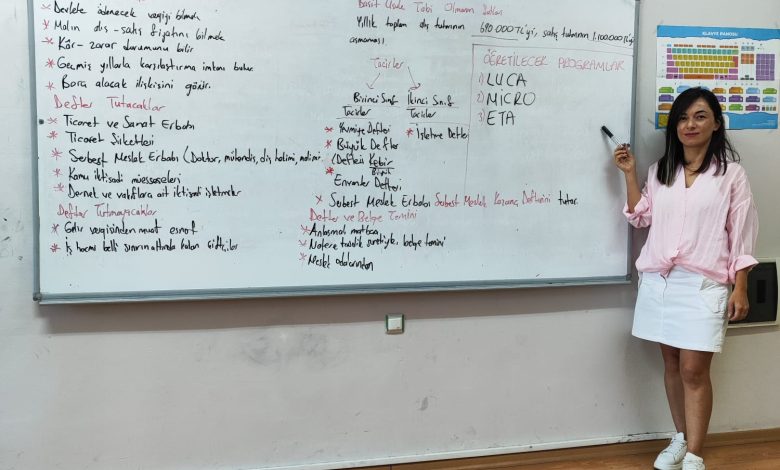 * Devlete ödenecek vergiyi bilmek
* Malın alış-satış fiyatını bilmek
* Kâr-zarar durumunu bilir
* Geçmiş yıllarla karşılaştırma imkanı bulur
* Borç alacak ilişkisini görür.
Defter Tutacaklar
* Ticaret ve Sanat Erbabı
* Ticaret Şirketleri
* Serbest Meslek Erbabı (Doktor, mühendis, diş hekimi,
* Kamu iktisadi müesseseleri
* Dernek ve vakıflara ait iktisadi işletmeler
Defter Tutmayacaklar
* Gelir vergisinden muaf esnaf
* İş hacmi belli sınırın altında kalan Çiftçiler
Basit Usule Tabi Olmanın Şartları
Yıllık toplam alış tutarının
aşmaması
Tacirler
Birinci Sınıf
Tacirler
* Yevmiye Defteri
* Büyük Defter
(Defteri Kebir
Büyük
Envanter Defteri
İkinci Sınıf
Tacirler
* İşletme Defteri
* Serbest Meslek Erbabı Serbest Meslek Kazanç Defterini tutar.
Defter ve Belge Temini
* Anlaşmalı matbaa
* Notere tasdik suretiyle, belge temini
* Meslek odalarından
ÖĞRETİLECEK PROGRAMLAR
1) LUCA
2) MİCRO
3) ETA
KLAVYE PANOSU